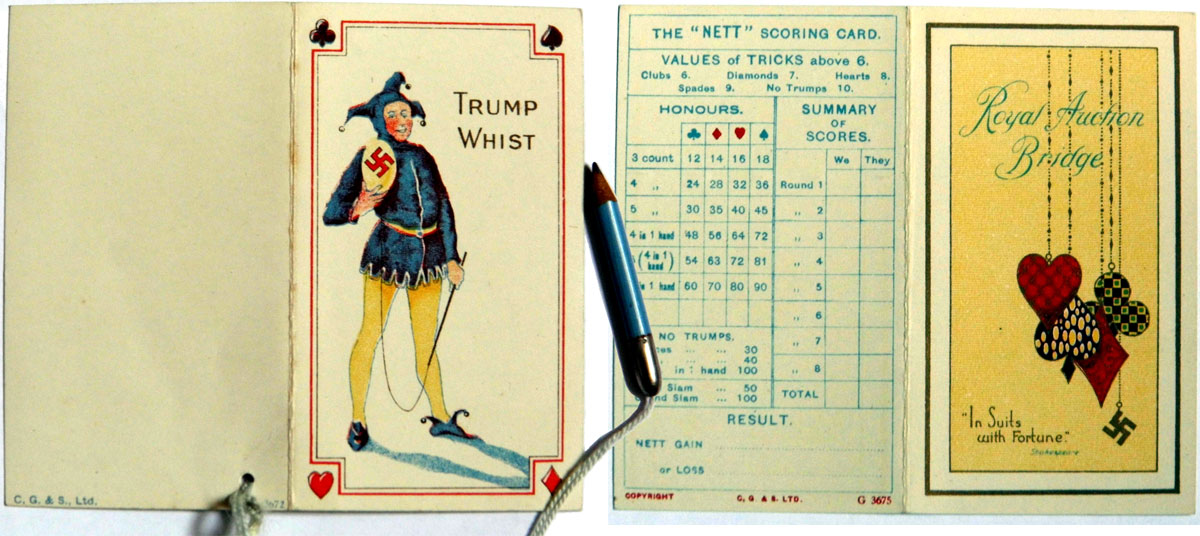 TRUMP
WHIST
C. G. & S., Ltd.
THE "NETT" SCORING CARD.
VALUES of TRICKS above 6.
Clubs 6. Diamonds 7. Hearts 8.
Spades 9. No Trumps 10.
HONOURS.
♣ ♦ ♥ ♠
3 count 12 14 16 18
4 ,, 24 28 32 36
5 ,, 30 35 40 45
4 in 1 hand 48 56 64 72
(4 in 1 hand) 54 63 72 81
1 hand 60 70 80 90
NO TRUMPS.
... ... 30
,, ... ... 40
in 1 hand 100
Slam ... 50
Slam ... 100
SUMMARY
OF
SCORES.
We They
Round 1
,, 2
,, 3
,, 4
,, 5
,, 6
,, 7
,, 8
TOTAL
RESULT.
NETT GAIN
or LOSS
COPYRIGHT C, G & S. LTD. G 3675
Royal Auction
Bridge
"In Suits
with Fortune."
Shakespeare